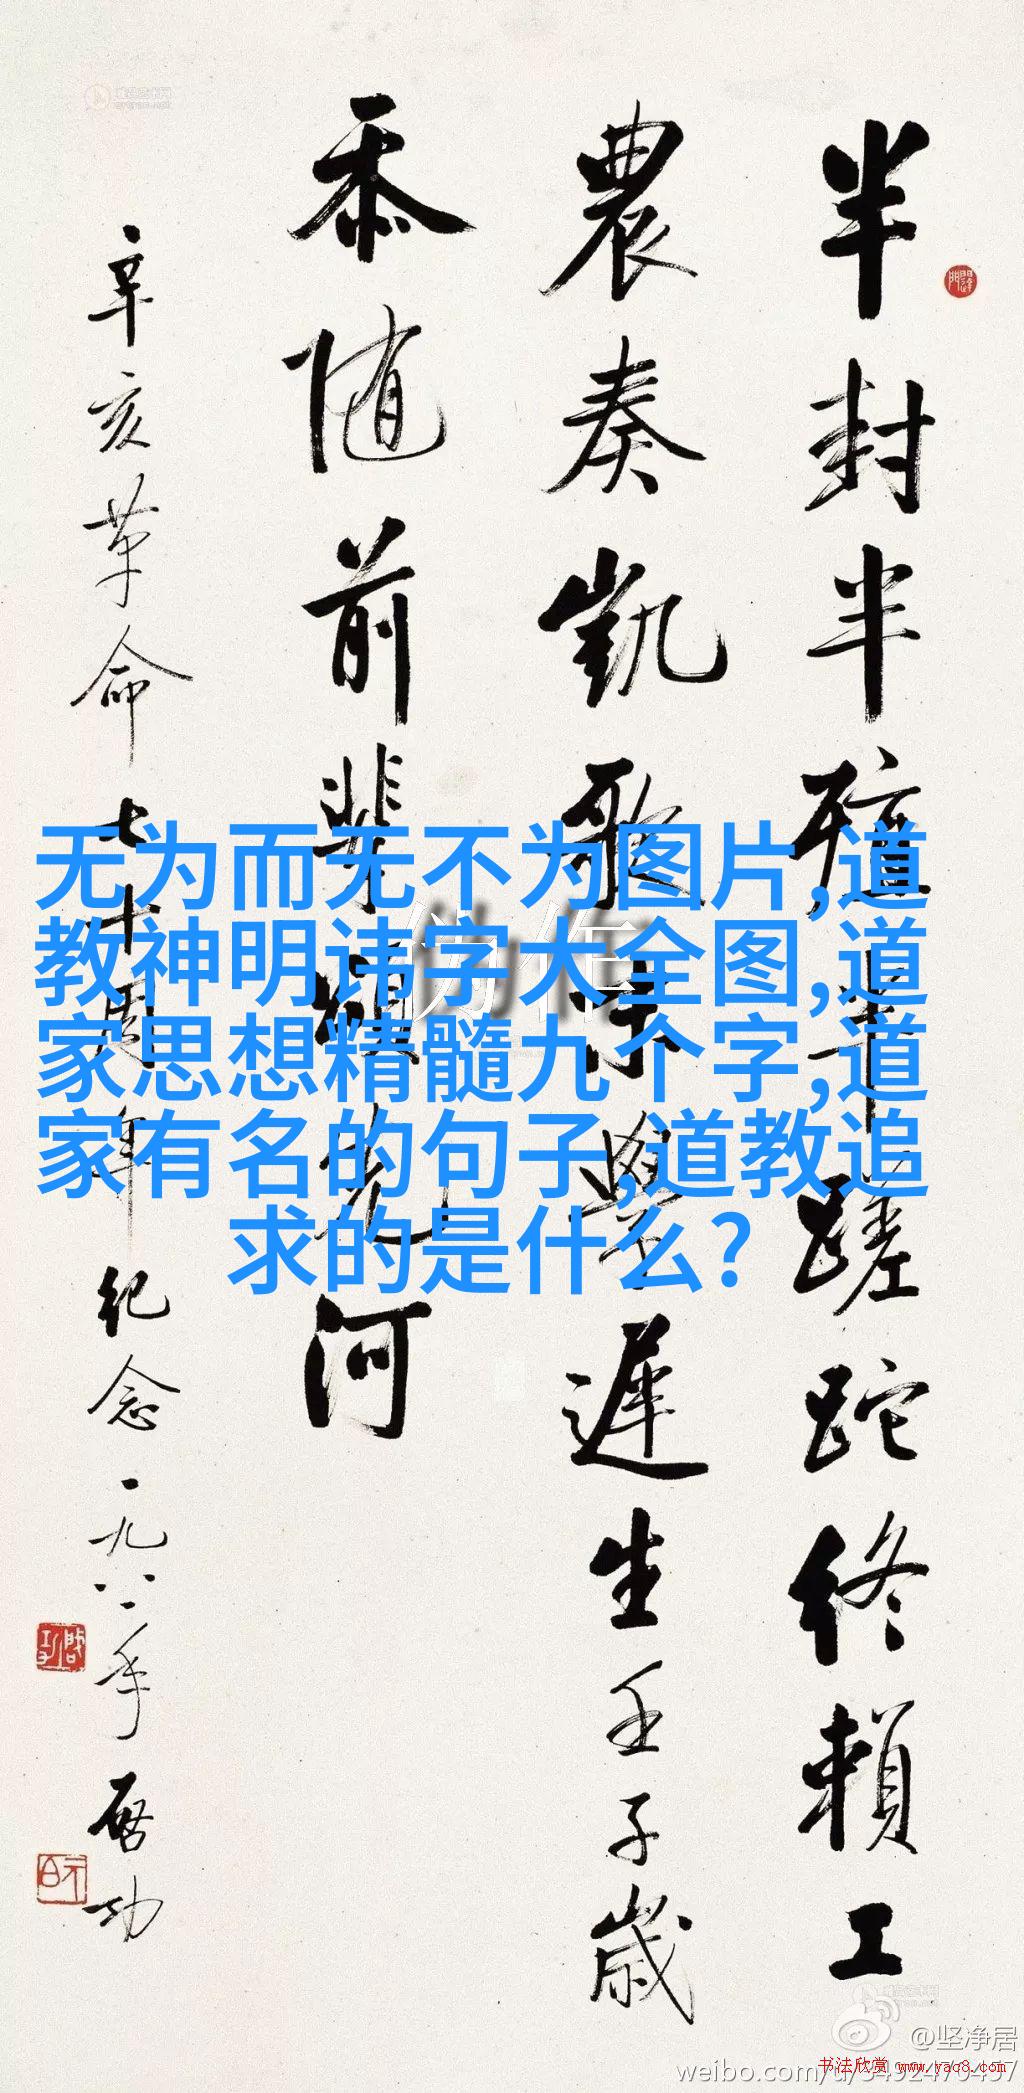 半封半殖半蹉跎终賴工
農奏凱歌ൠ學遲生壬子歲
忝随前輩頌先河
辛亥革命七十周年纪念一九八一年启功
无为而无不为图片,道
教神明讳字大全图,道
家思想精髓九个字,道
家有名的句子,道教追
求的是什么?
伪作
@坚净居
书法欣赏 www.yac8.com
weibo.com/u/3492470437